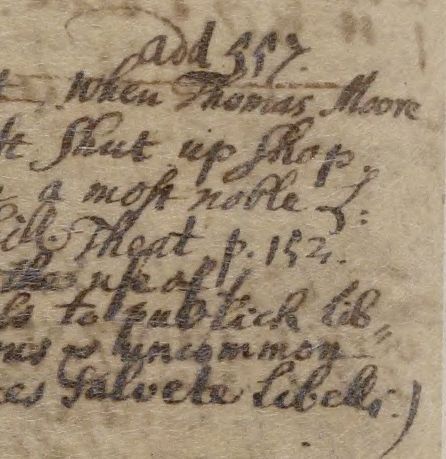 add 557.
, when Thomas Moore
shut up shop.
a most noble
Theat p. 152.
the use of
to publick lib=
uncommon
Salvete libelli.)